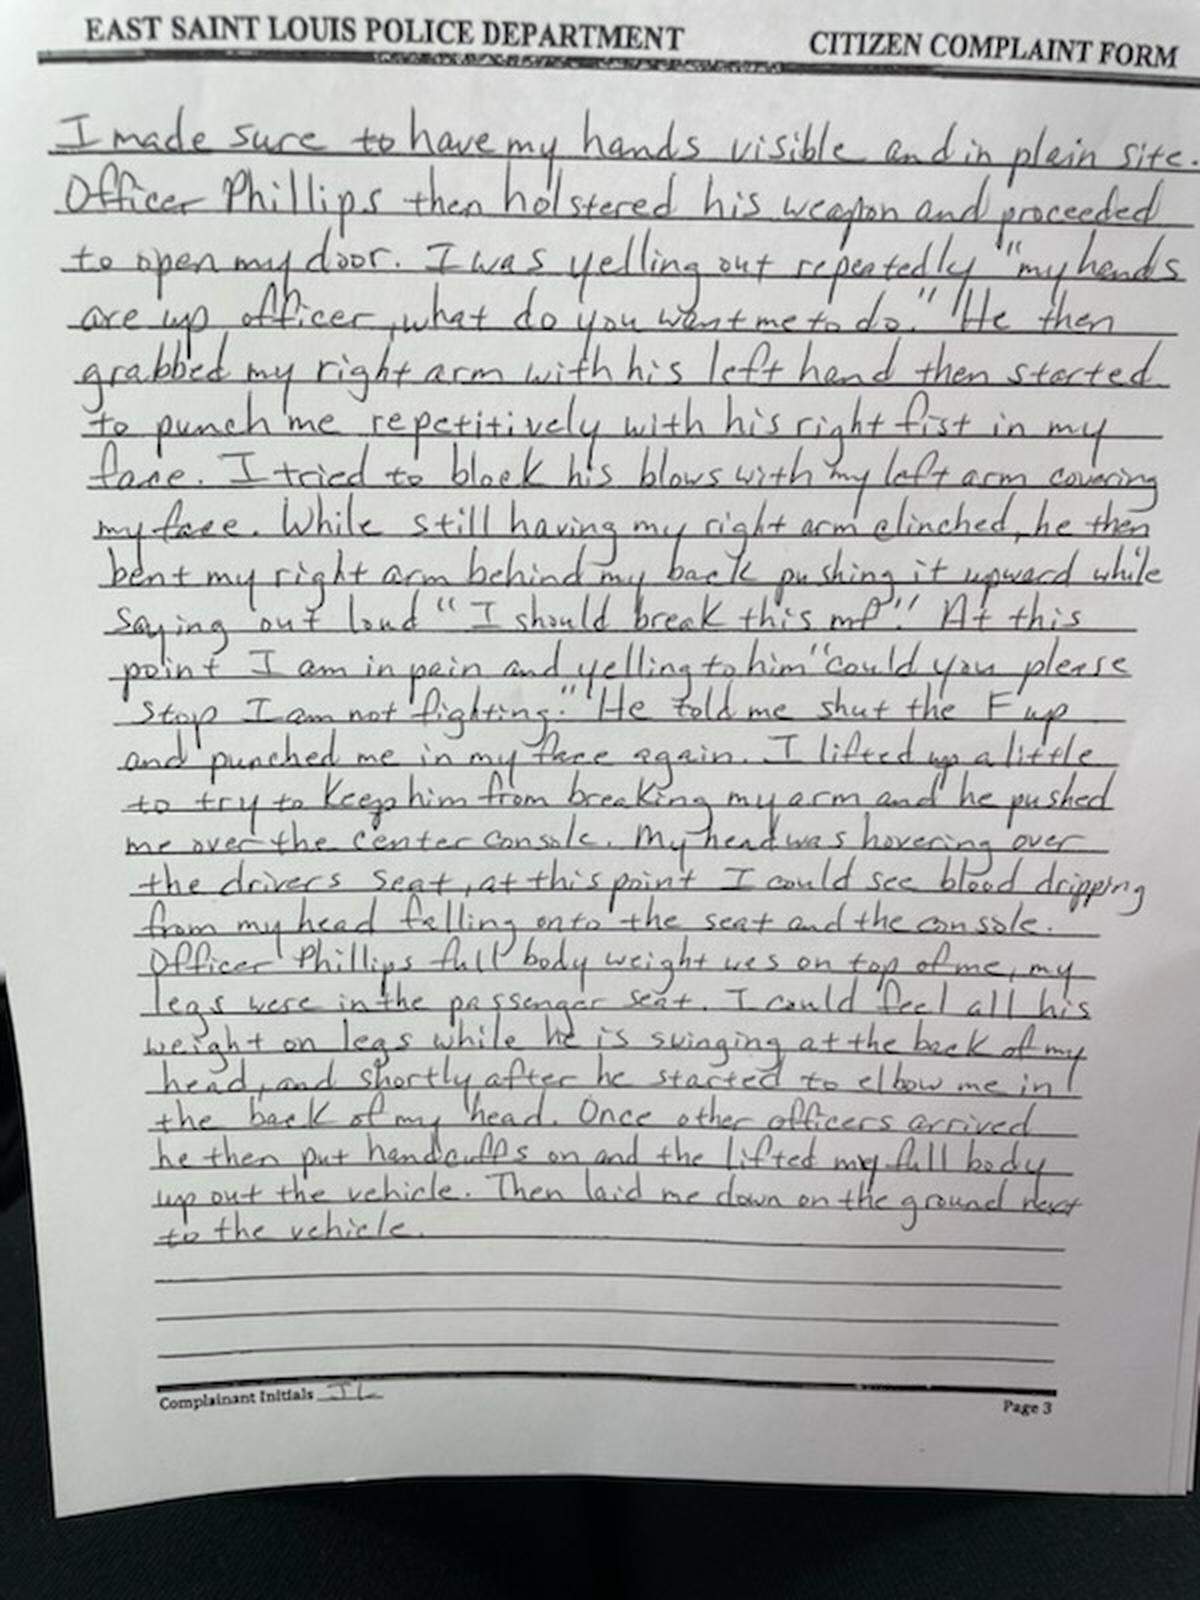 EAST SAINT LOUIS POLICE DEPARTMENT CITIZEN COMPLAINT FORM
I made sure to have my hands visible and in plain site.
Officer Phillips then holstered his weapon and proceeded
to open my door. I was yelling out repeatedly "my hands
are up officer, what do you want me to do." He then
grabbed my right arm with his left hand then started
to punch me repetitively with his right fist in my
face. I tried to block his blows with my left arm covering
my face. While still having my right arm clinched, he then
bent my right arm behind my back pushing it upward while
saying out loud "I should break this mf". At this
point I am in pain and yelling to him "could you please
stop I am not fighting." He told me shut the F up
and punched me in my face again. I lifted up a little
to try to keep him from breaking my arm and he pushed
me over the center console. My head was hovering over
the drivers seat, at this point I could see blood dripping
from my head falling onto the seat and the console.
Officer Phillips full body weight was on top of me, my
legs were in the passenger seat. I could feel all his
weight on legs while he is swinging at the back of my
head, and shortly after he started to elbow me in
the back of my head. Once other officers arrived
he then put handcuffs on and the lifted my full body
up out the vehicle. Then laid me down on the ground next
to the vehicle.
Complainant Initials JL Page 3